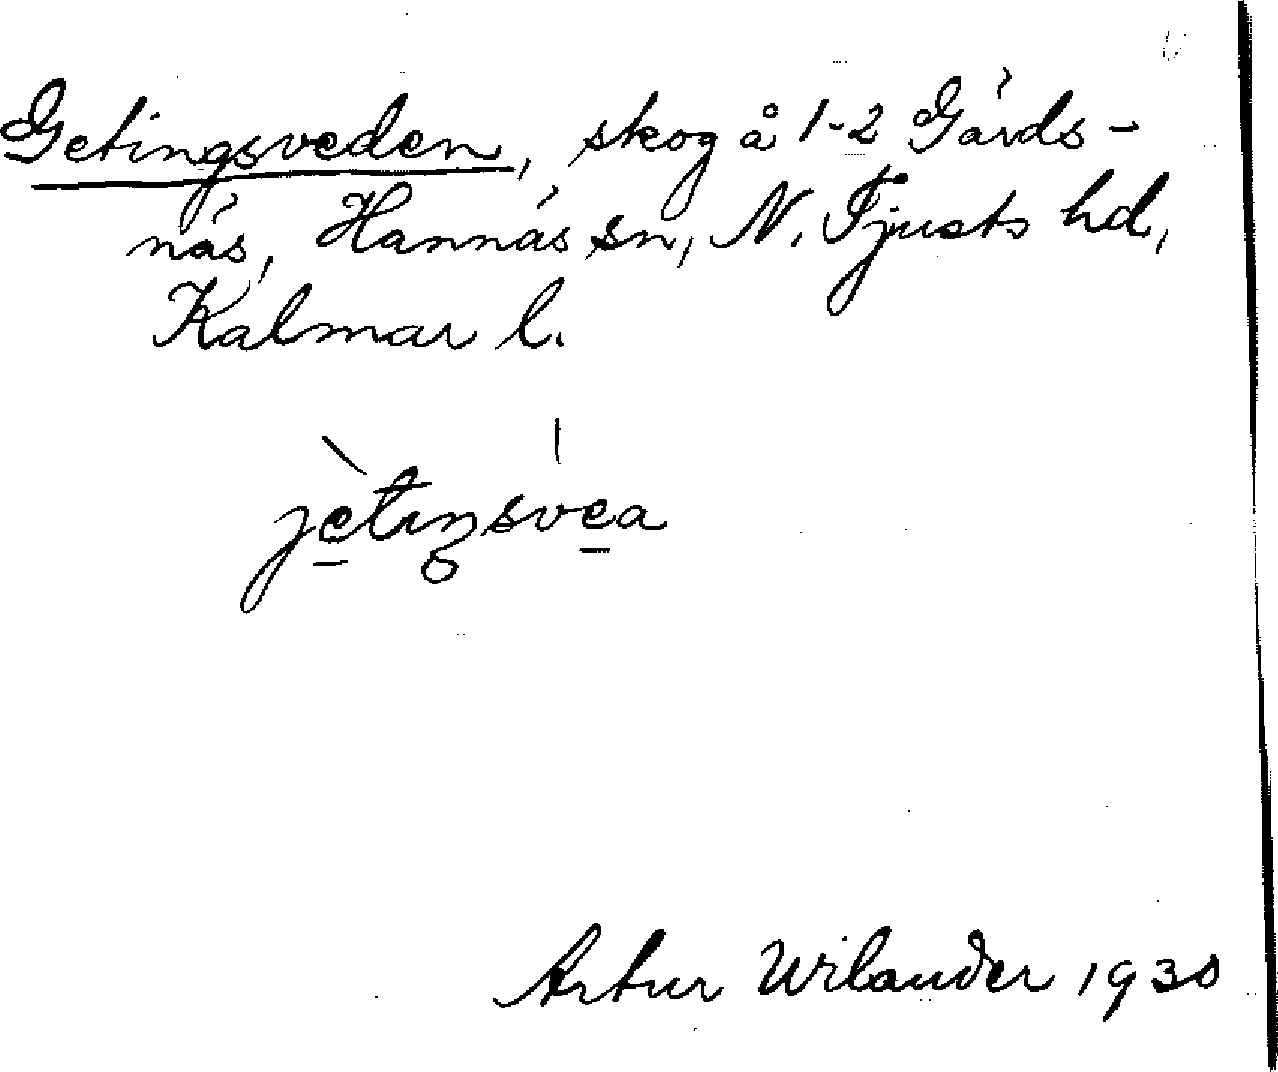 Getingsveden, skog å 1-2 Gärds-
näs, Hannäs sn, N. Tjusts hd,
Kalmar l.
jètiŋsvea
Artur Wilander 1930